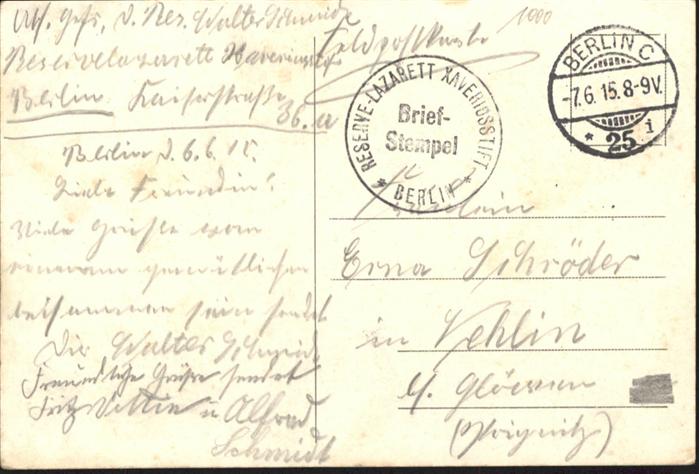 Abs. Gefr. d. Res. Walter Schmidt
Reservelazarett Xaveriusstift
Berlin Kaiserstraße
36.a
Feldpostkarte
1000
RESERVE-LAZARETT XAVERIOSSTIFT
Brief-
Stempel
* BERLIN *
BERLIN C
-7.6.15.8-9V.
* 25 i
Berlin d. 6.6.15.
Liebe Freundin!
Viele Grüße vom
einem gemütlichen
beisammen sein sendet
Dir Walter Schmidt
Freundliche Grüße sendet
Fritz u. Alfred
Schmidt
Fräulein
Erna Schröder
in Vehlin
b/ Glöwen
(Prignitz)